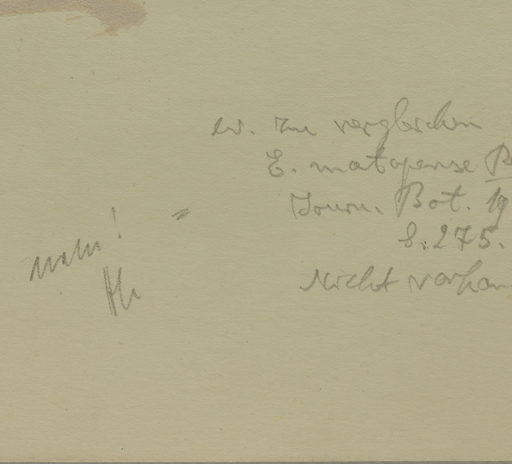 ev. zu vergleichen
E. matopense
Journ. Bot. 19
S. 275.
Nicht vorhan